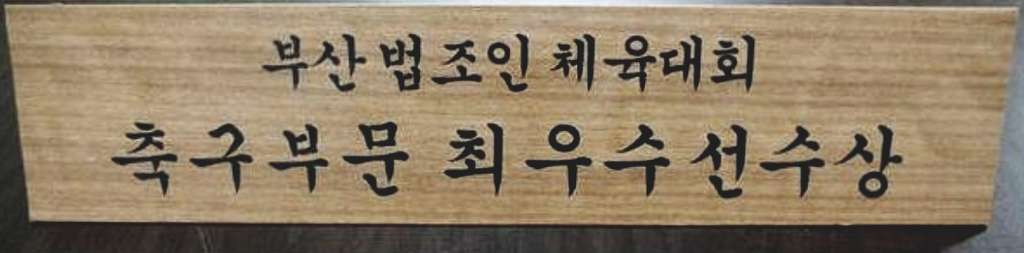 부산 법조인 체육대회
축구부문 최우수선수상